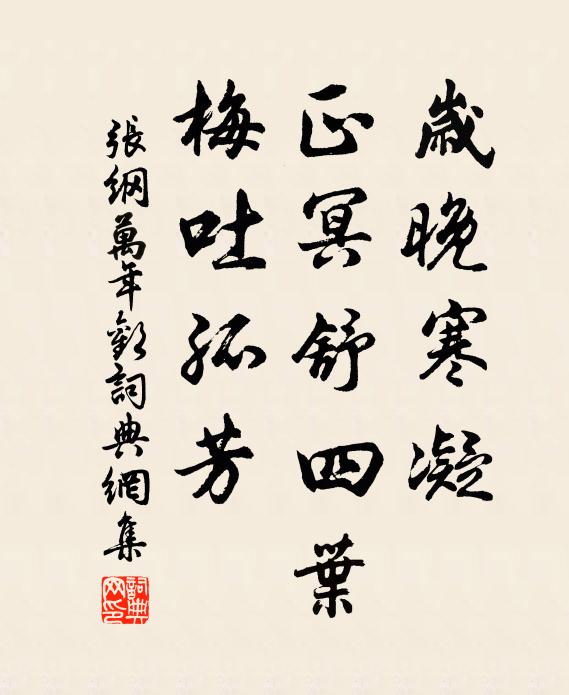 歲晚寒凝
正冥舒四葉
梅吐孤芳
張綱萬年歡詞典網集
詞典網印